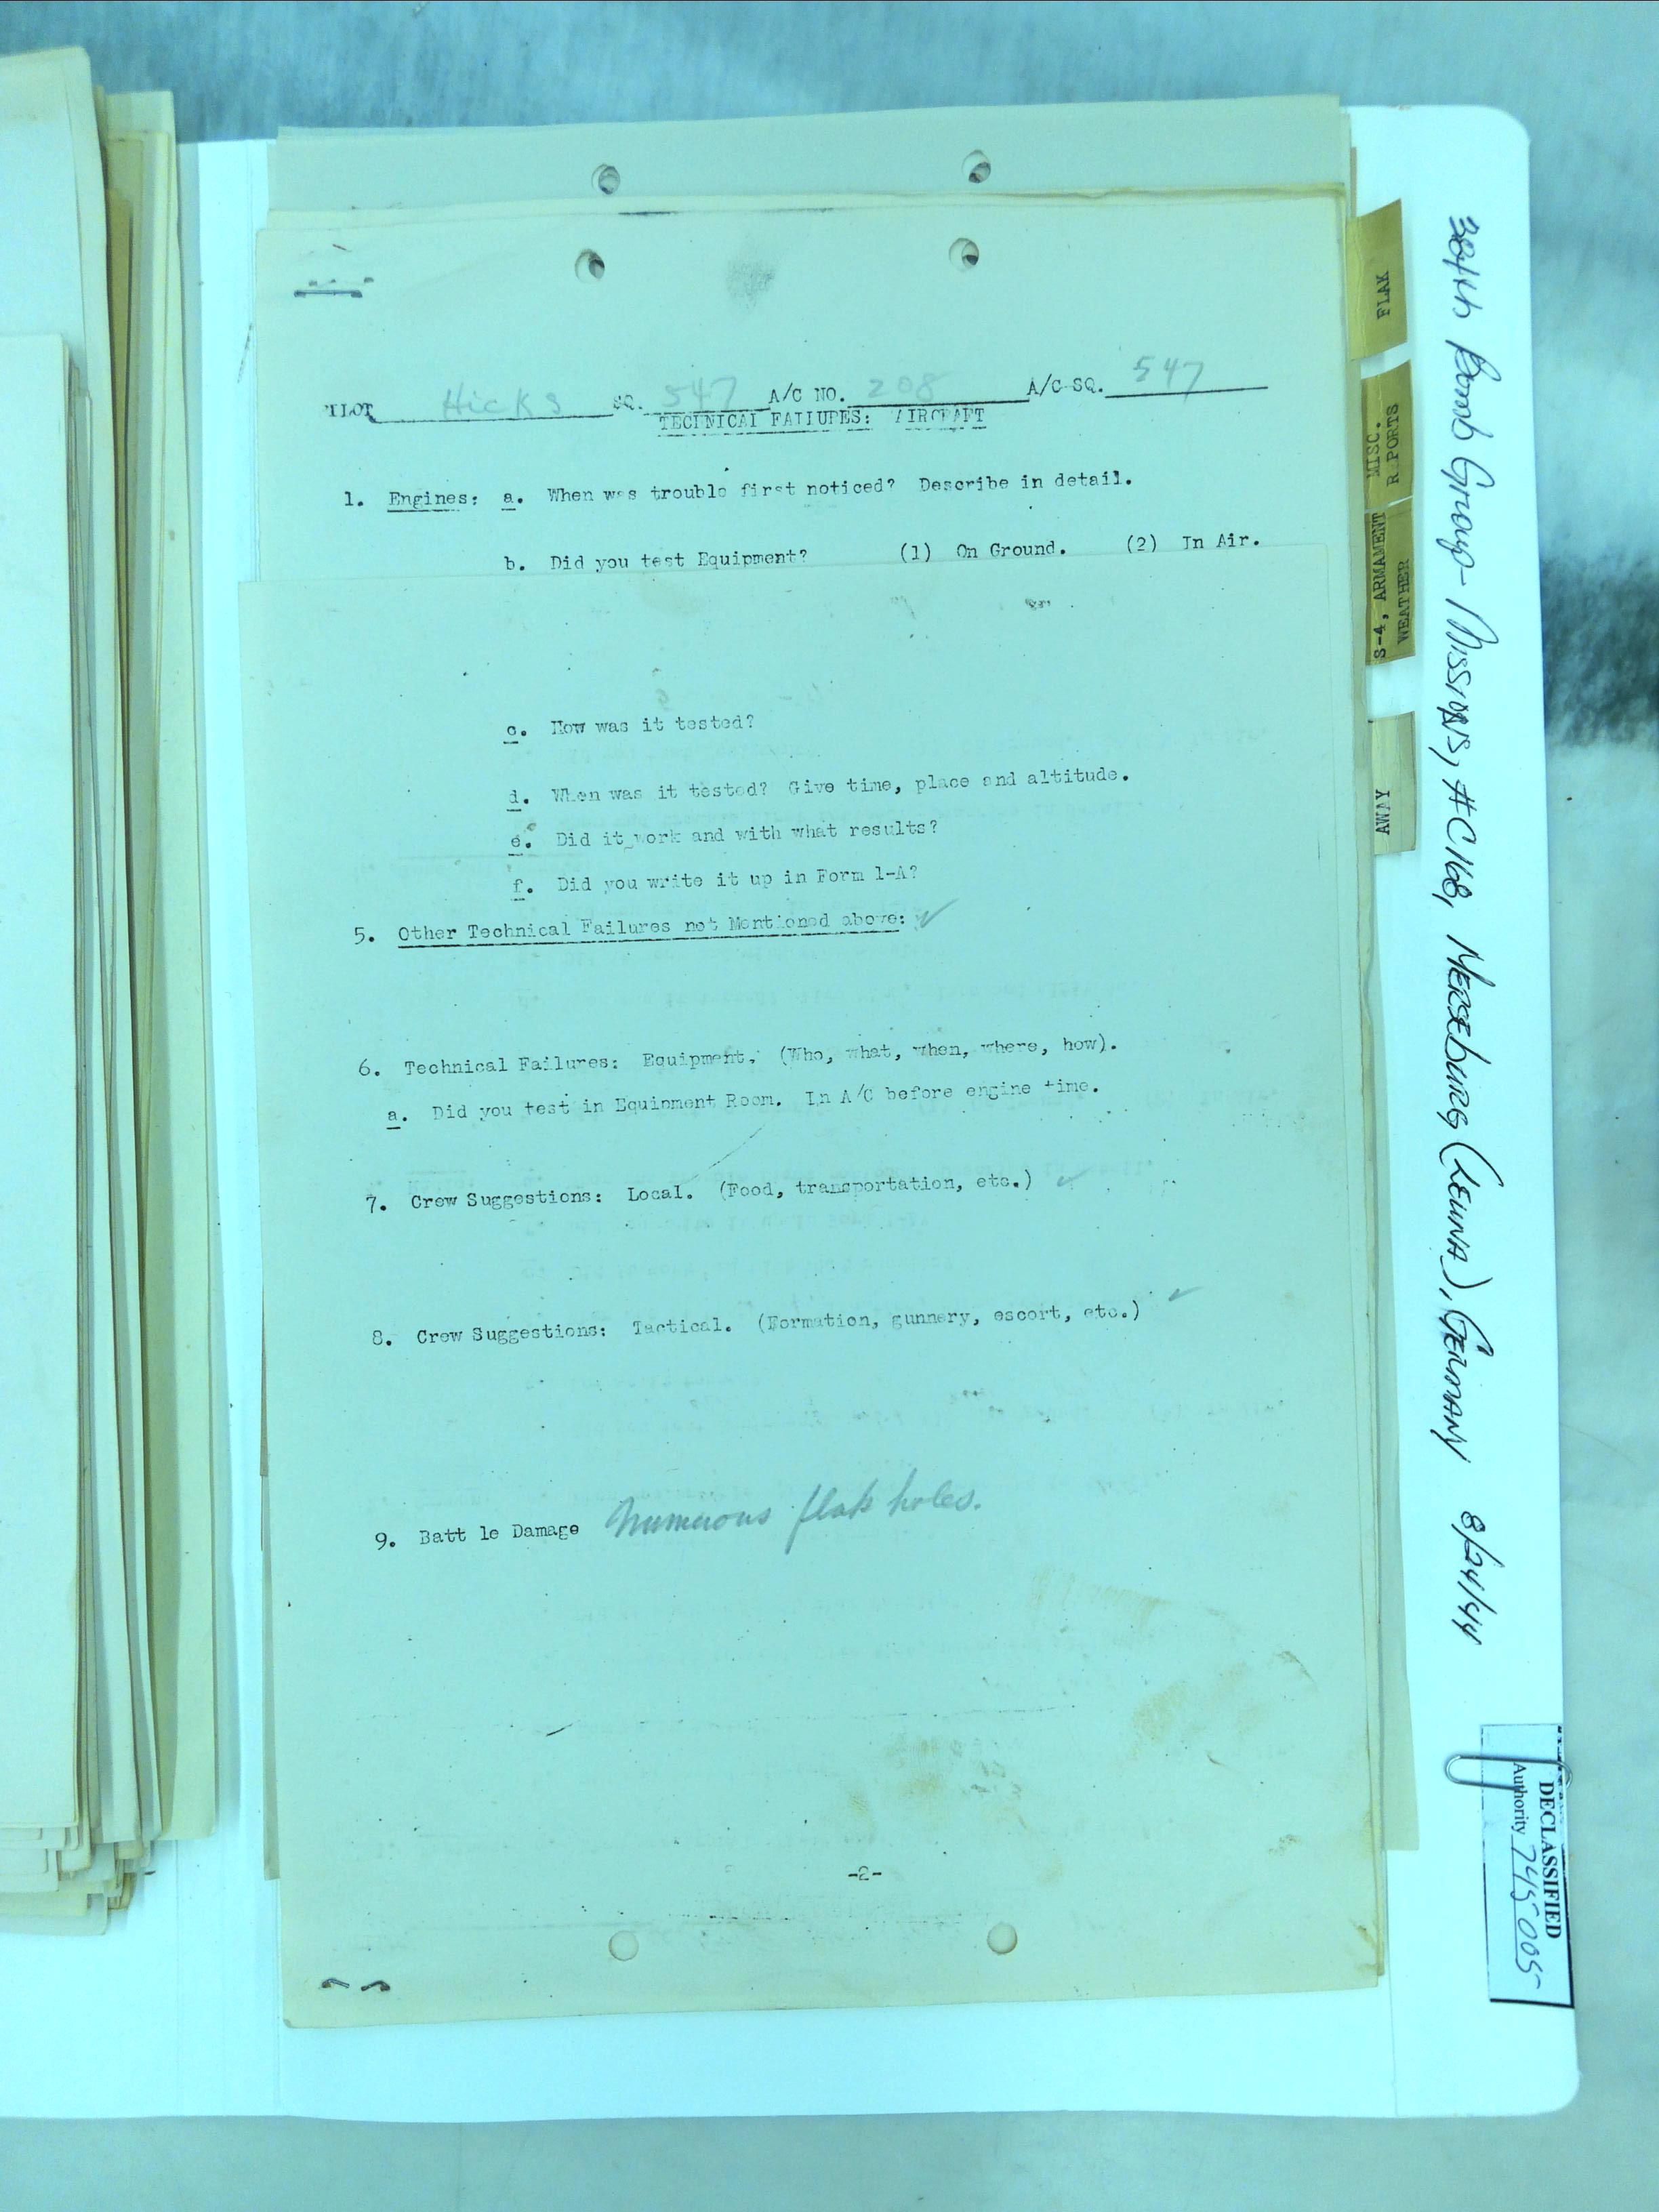 PILOT Hicks SQ. 547 A/C NO. 208 A/C SQ. 547
TECHNICAL FAILURES: AIRCRAFT
1. Engines: a. When was trouble first noticed? Describe in detail.
b. Did you test Equipment? (1) On Ground. (2) In Air.
c. How was it tested?
d. When was it tested? Give time, place and altitude.
e. Did it work and with what results?
f. Did you write it up in Form 1-A?
5. Other Technical Failures not Mentioned above: ✓
6. Technical Failures: Equipment. (Who, what, when, where, how).
a. Did you test in Equipment Room. In A/C before engine time.
7. Crew Suggestions: Local. (Food, transportation, etc.) ✓
8. Crew Suggestions: Tactical. (Formation, gunnery, escort, etc.) ✓
9. Batt le Damage Numerous flak holes.
-2-
FLAK
MISC.
R PORTS
S-4, ARMAMENT
WEATHER
AWAY
384th Bomb Group - Missions, #C168, Merseburg (Leuna), Germany 8/24/44
DECLASSIFIED
Authority 745005